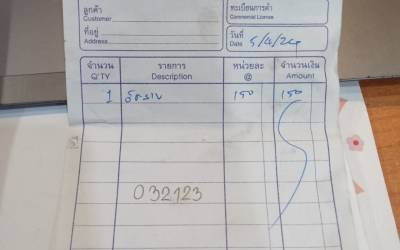 ลูกค้า ทะเบียนการค้า
Customer Commercial License
ที่อยู่ วันที่
Address Date 5/4/24
จำนวน รายการ หน่วยละ จำนวนเงิน
Q'TY Description @ Amount
1 150 150
032123